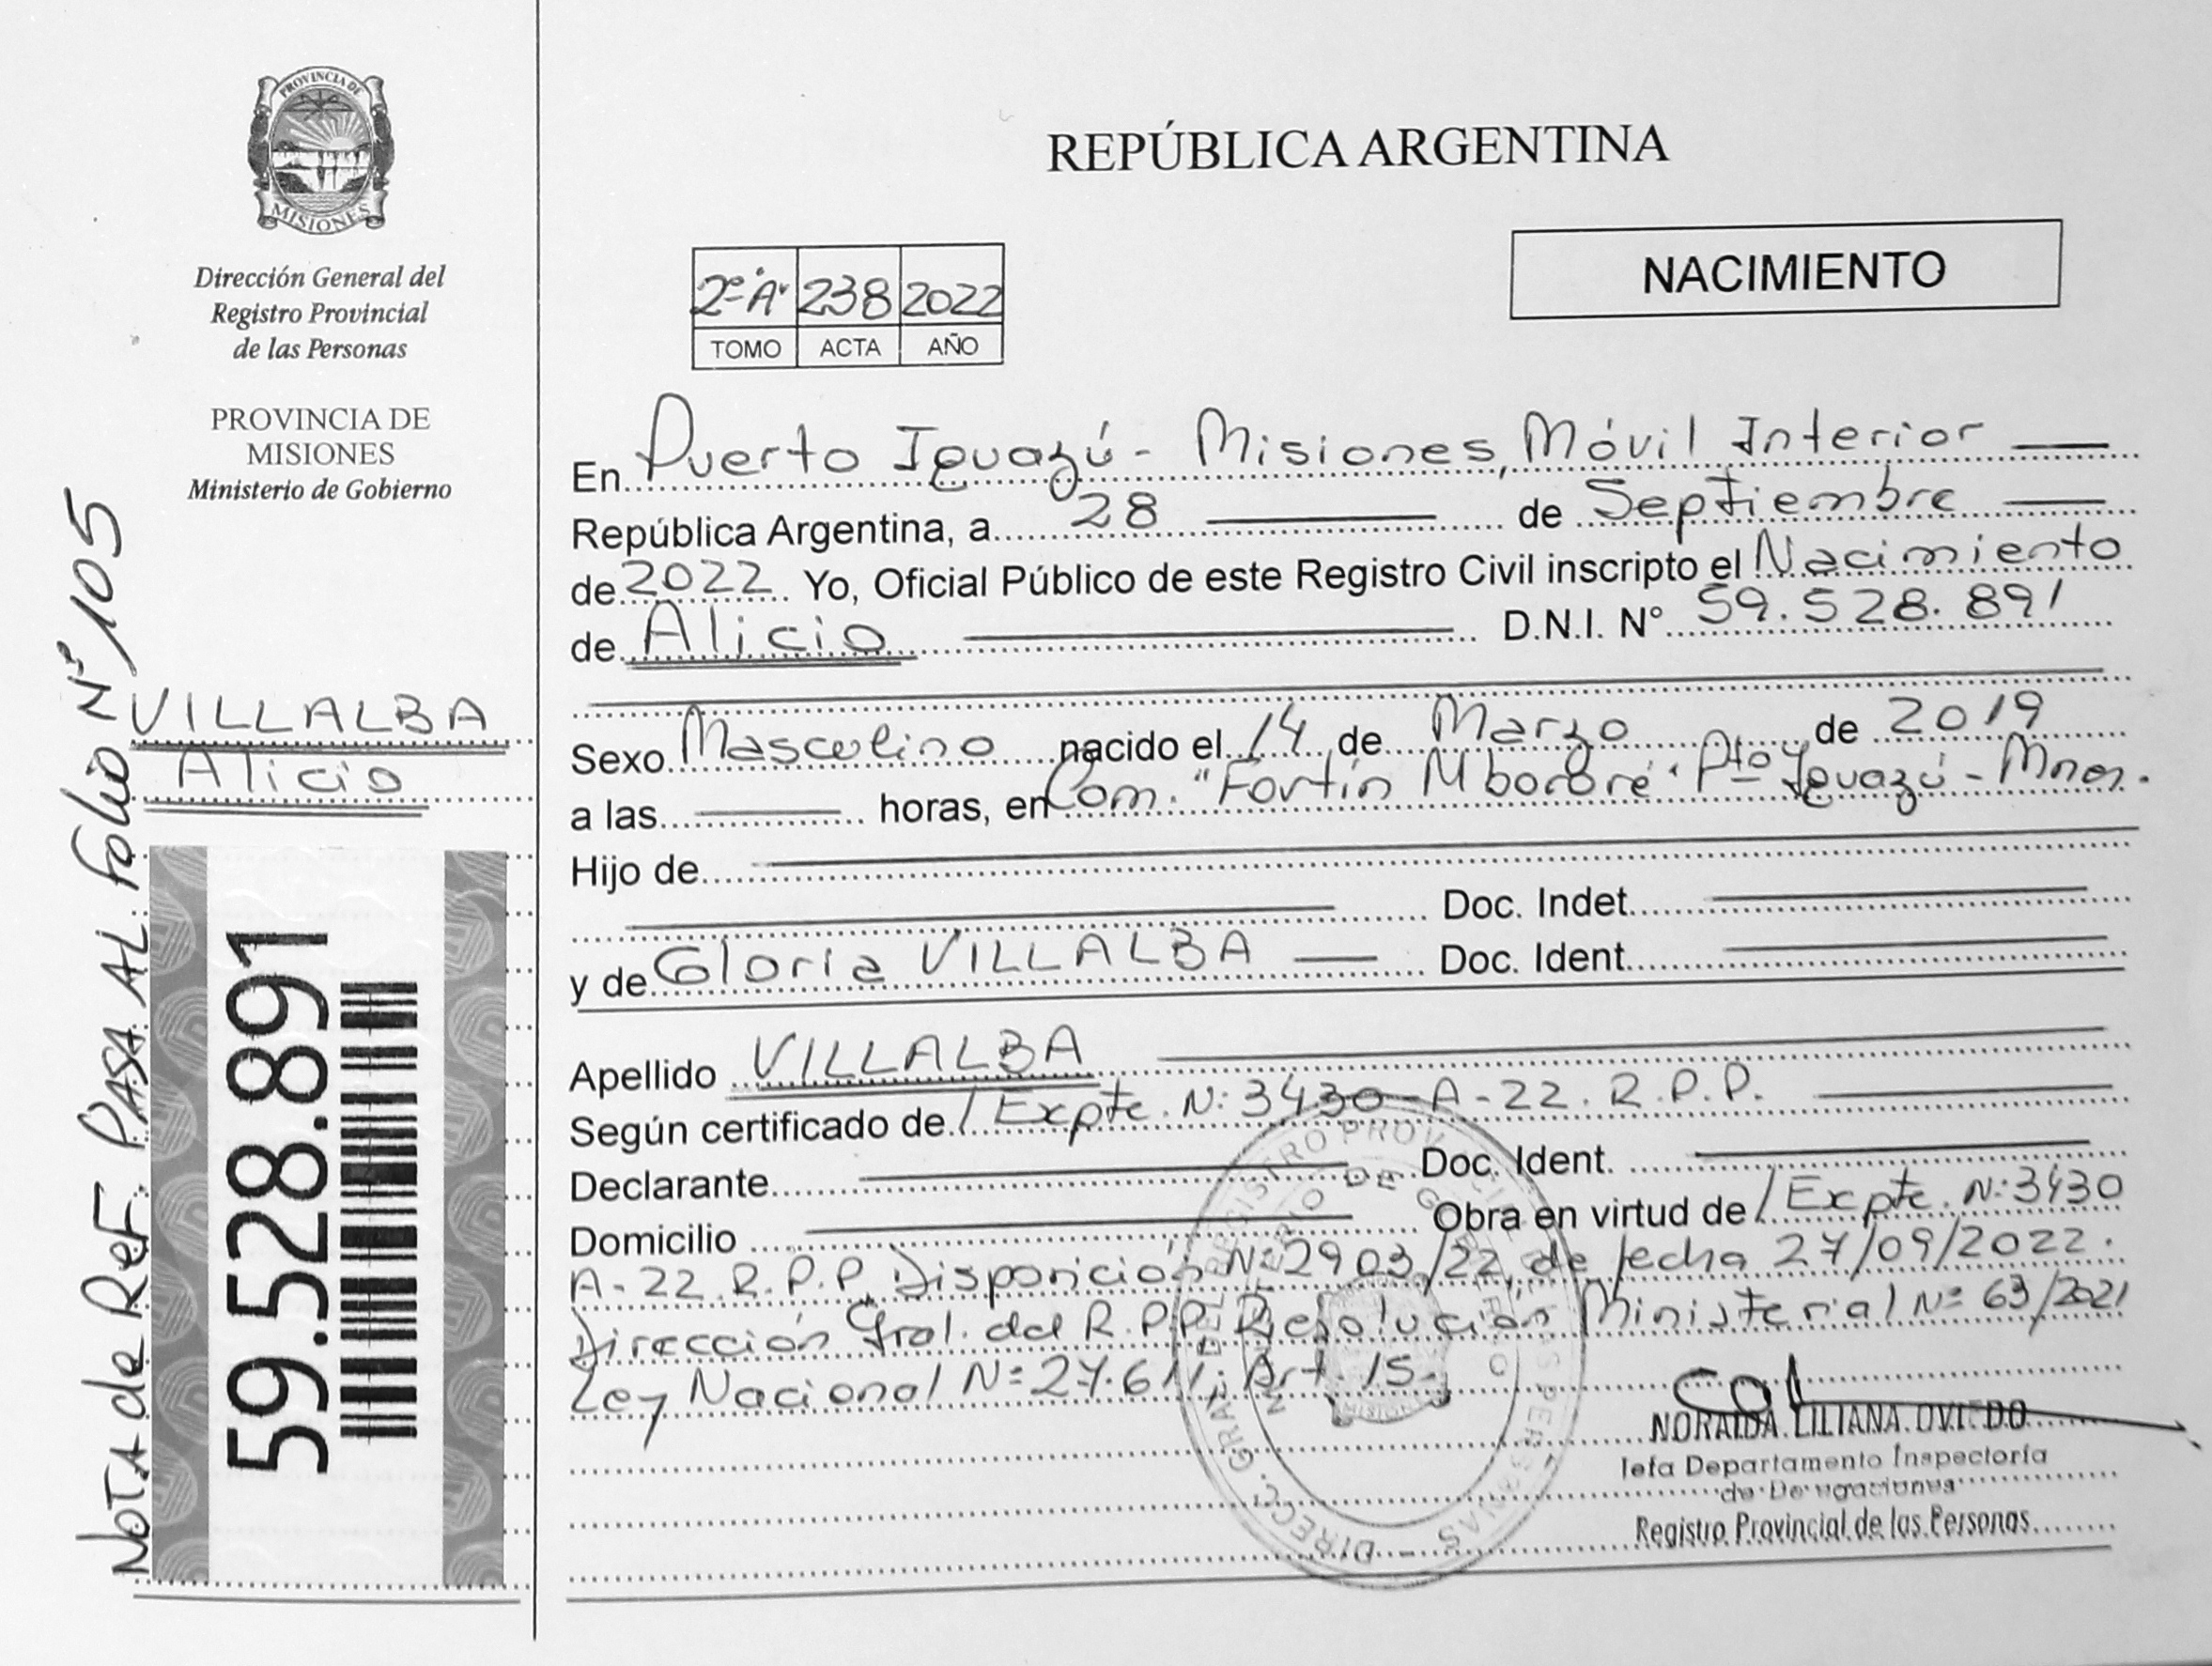 PROVINCIA DE
MISIONES
Dirección General del
Registro Provincial
de las Personas
PROVINCIA DE
MISIONES
Ministerio de Gobierno
NOTA de ReF. PASA AL Folio Nº 105
VILLALBA
Alicio
59.528.891
REPÚBLICA ARGENTINA
NACIMIENTO
2º "A" 238 2022
TOMO ACTA AÑO
En Puerto Iguazú - Misiones, Móvil Interior
República Argentina, a 28 de Septiembre
de 2022 Yo, Oficial Público de este Registro Civil inscripto el Nacimiento
de Alicio D.N.I. N° 59.528.891
Sexo Masculino nacido el 14 de Marzo de 2019
a las horas, en Com. "Fortín Mbororé" Pto Iguazú - Mnes.
Hijo de
Doc. Indet.
y de Gloria VILLALBA Doc. Ident.
Apellido VILLALBA
Según certificado de / Expte. Nº 3430-A-22. R.P.P.
Declarante Doc. Ident.
Domicilio Obra en virtud de / Expte. Nº 3430
A-22 R.P.P, Disposición Nº 2903/22, de fecha 27/09/2022.
Dirección Gral. del R.P.P. Resolución Ministerial Nº 63/2021
Ley Nacional Nº 27.611, Art. 15.
NORAIDA LILIANA OVIEDO
Jefa Departamento Inspectoría
Registro Provincial de las Personas
MISIONES